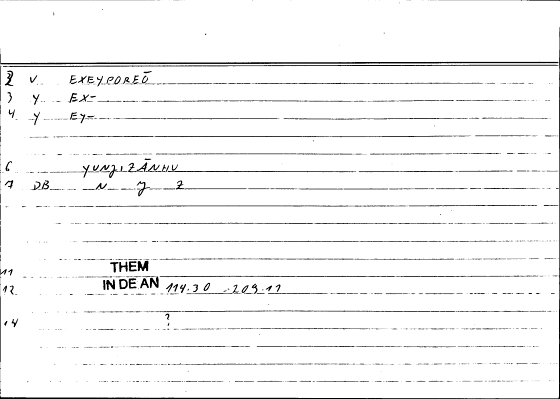 2 V. EXEYPOREŌ
3 Y EX-
4. Y EY-
6 YUNJIZĀNHU
7 DB N J Z
11 THEM
12. IN DE AN 114.30 -209.17
14 ?